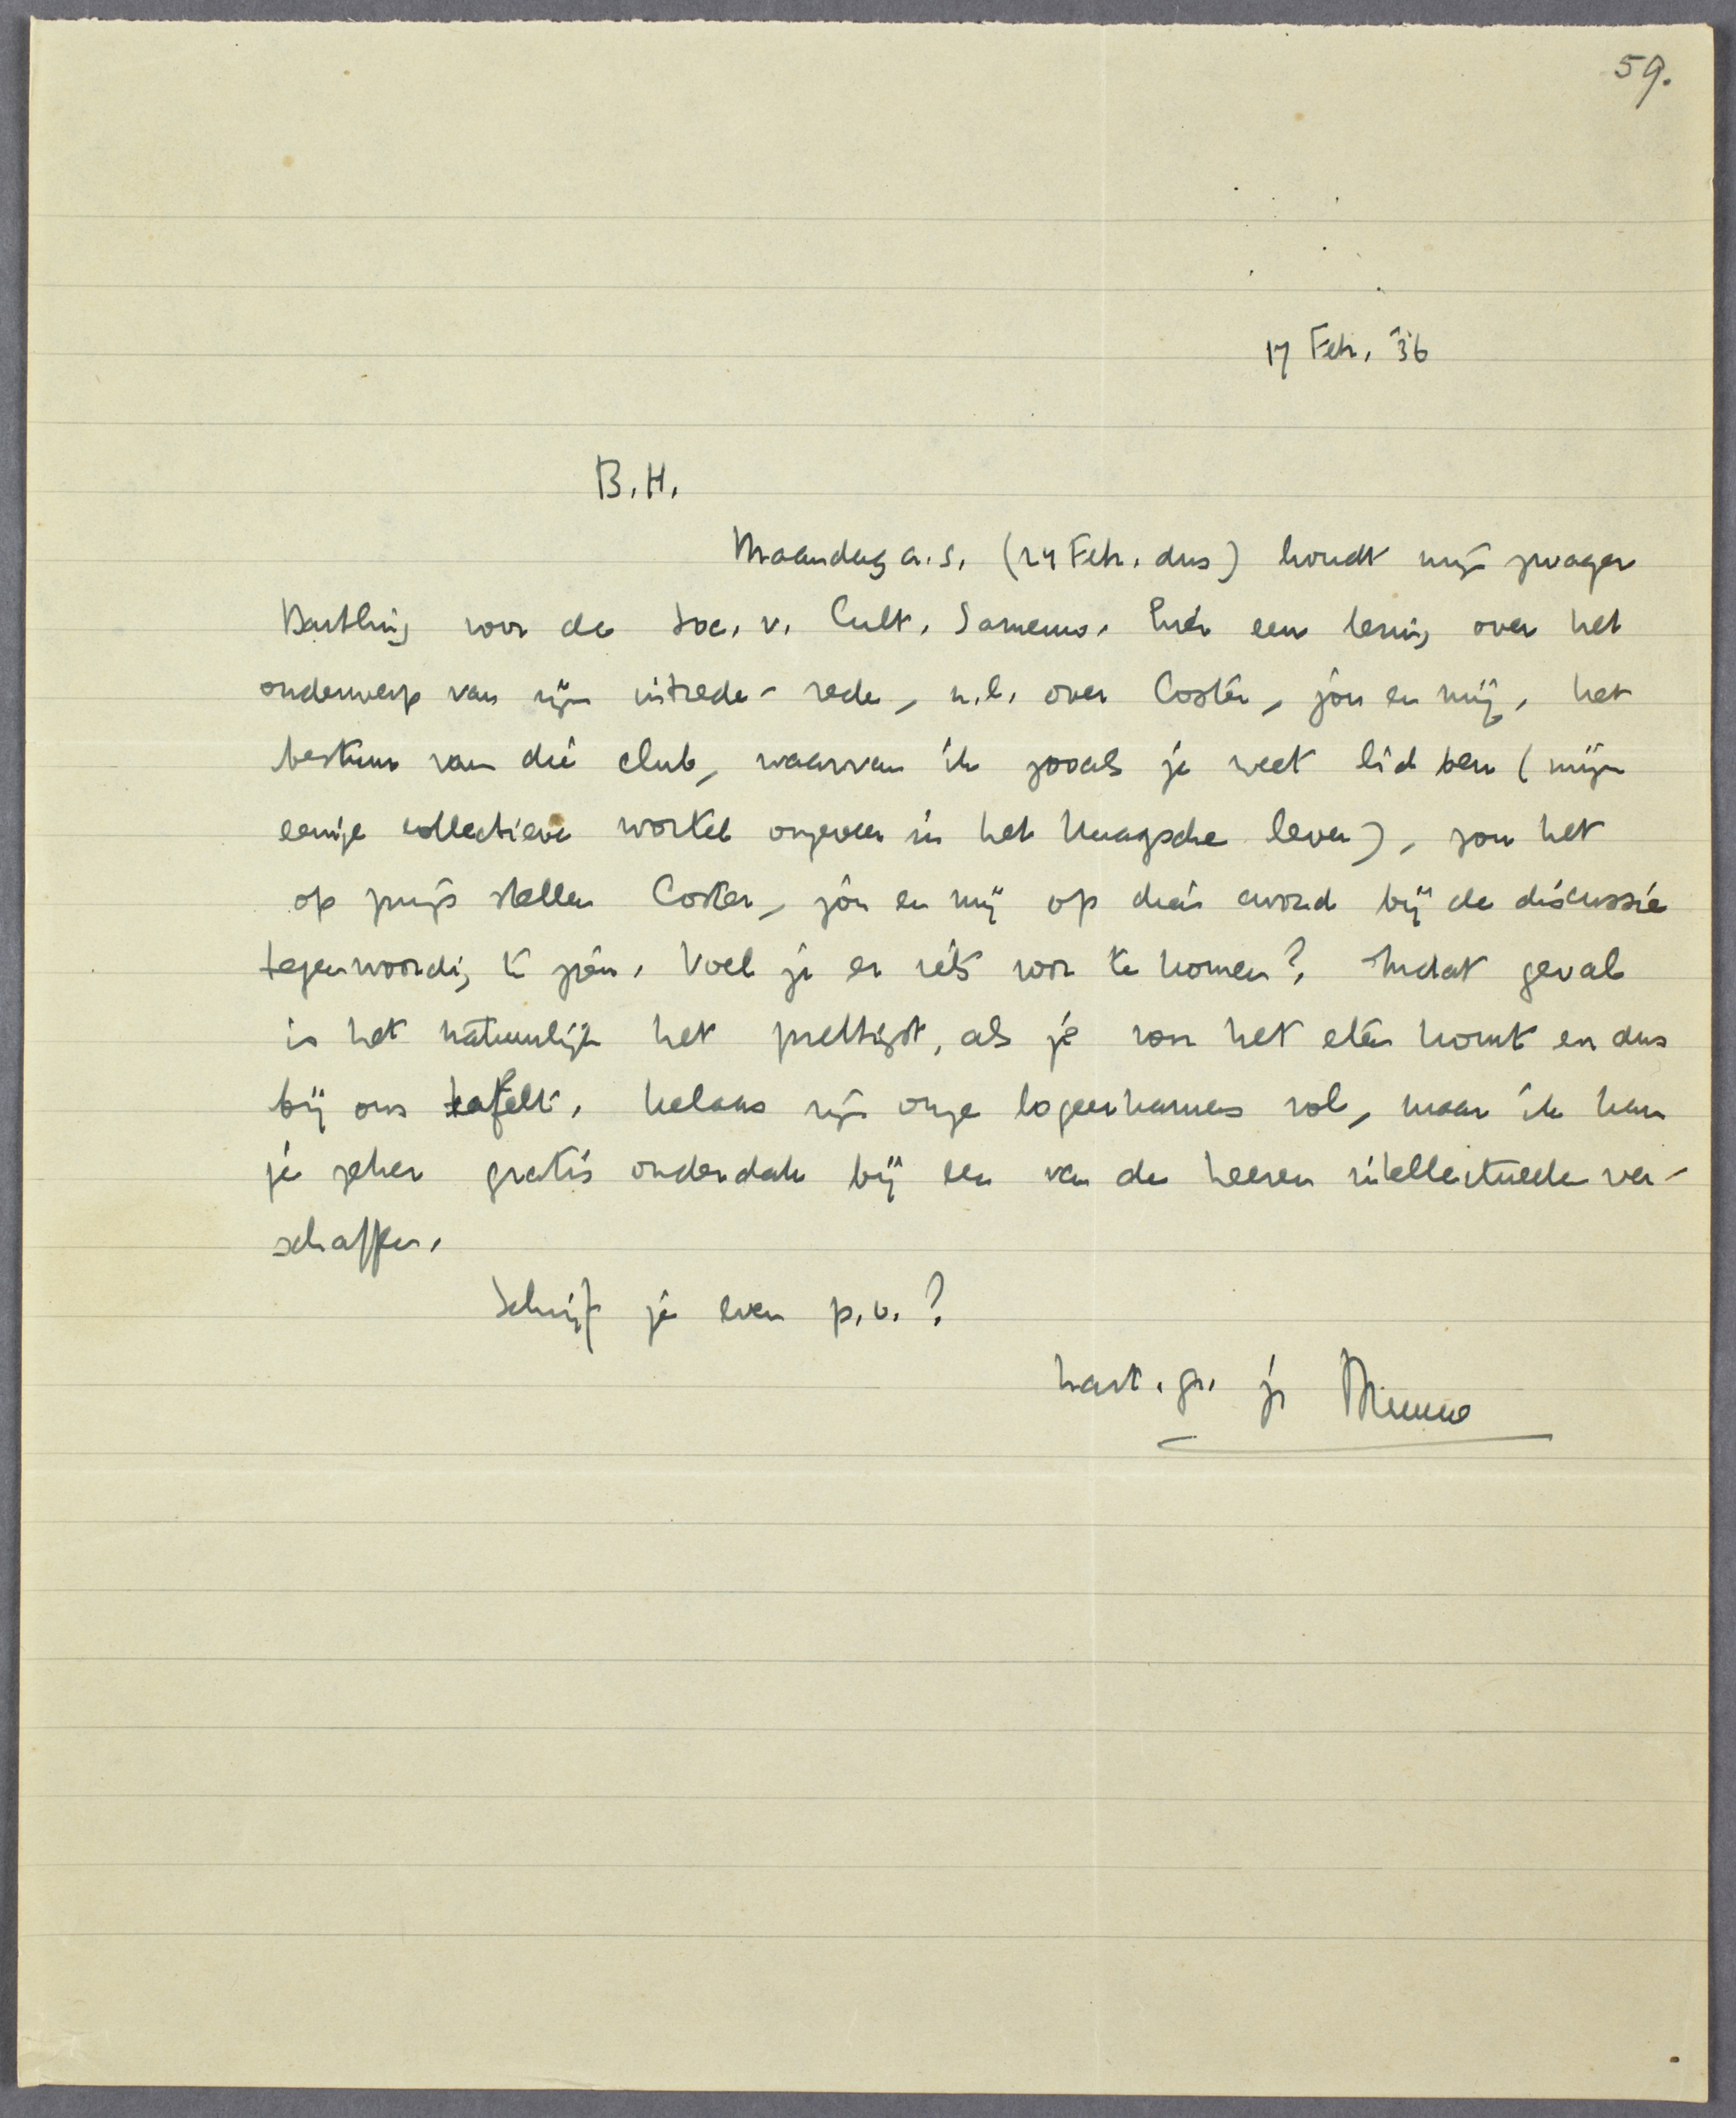 59.
17 Febr. '36
B.H.
Maandag a.s. (24 Febr. dus) houdt mijn zwager
Bartling voor de Soc. v. Cult. Samenw. hier een lezing over het
onderwerp van zijn intrede-rede, n.l. over Coster, jou en mij. Het
bestuur van die club, waarvan ik zooals je weet lid ben (mijn
eenige collectieve wortel ongeveer in het Haagsche leven), zou het
op prijs stellen Coster, jou en mij op dien avond bij de discussie
tegenwoordig te zien. Voel je er iets voor te komen? In dat geval
is het natuurlijk het prettigst, als je voor het eten komt en dus
bij ons tafelt. Helaas zijn onze logeerkamers vol, maar ik kan
je zeker gratis onderdak bij een van de heeren intellectueelen ver-
schaffen.
Schrijf je even p.o.?
hart. gr. je Menno